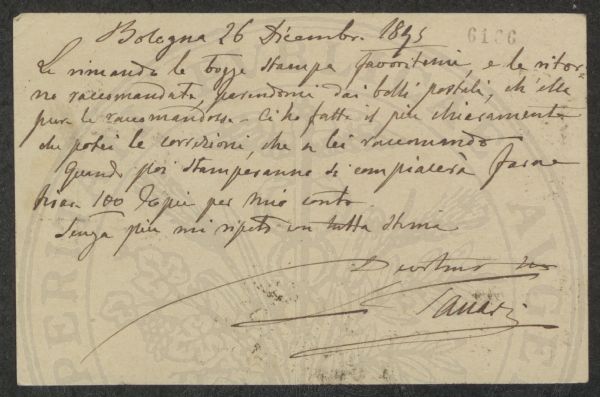 Bologna 26 Dicembre 1895
6166
Le rimando le bozze stampa favoritemi, e le ritor-
no raccomandate, parendomi dai bolli postali, ch'ella
pure le raccomandasse - Ci ho fatto il più chiaramente
che potei le correzioni, che a lei raccomando
Quando poi stamperanno si compiacerà farne
tirar 100 copie per mio conto
Senza più mi ripeto con tutta stima
Devotmo